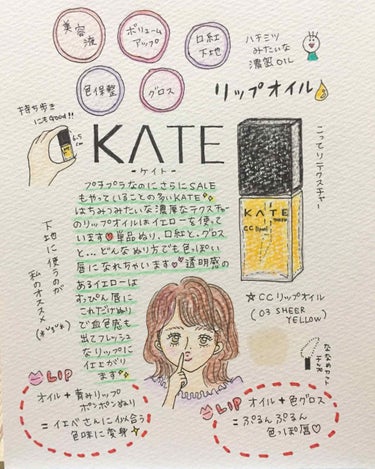 美容液
ボリュームアップ
口紅下地
ハチミツ
みたいな
濃密OIL
色補整
グロス
リップオイル
持ち歩き
にもGood!!
6.5cm
KATE
-ケイト-
こってりテクスチャー
プチプラなのにさらにSALE
もやっていることの多いKATE
はちみつみたいな濃厚なテクスチャー
のリップオイルはイエローを使って
います 単品ぬり、口紅と、グロス
と…どんなぬり方でも色っぽい
唇になれちゃいます 透明感の
あるイエローは
すっぴん唇に
これだけぬり
で血色感も
出てフレッシュ
なリップに
仕上がり
ます
下地に使うのが
私のオススメ
KATE
TOKYO
CC Lip oil
☆CCリップオイル
(03 SHEER
YELLOW)
ななめカット
チップ
LIP
オイル+青みリップ
ポンポンぬり
=イエベさんに似合う
色味に変身
LIP
オイル+色グロス
=ぷるんぷるん
色っぽ唇♡